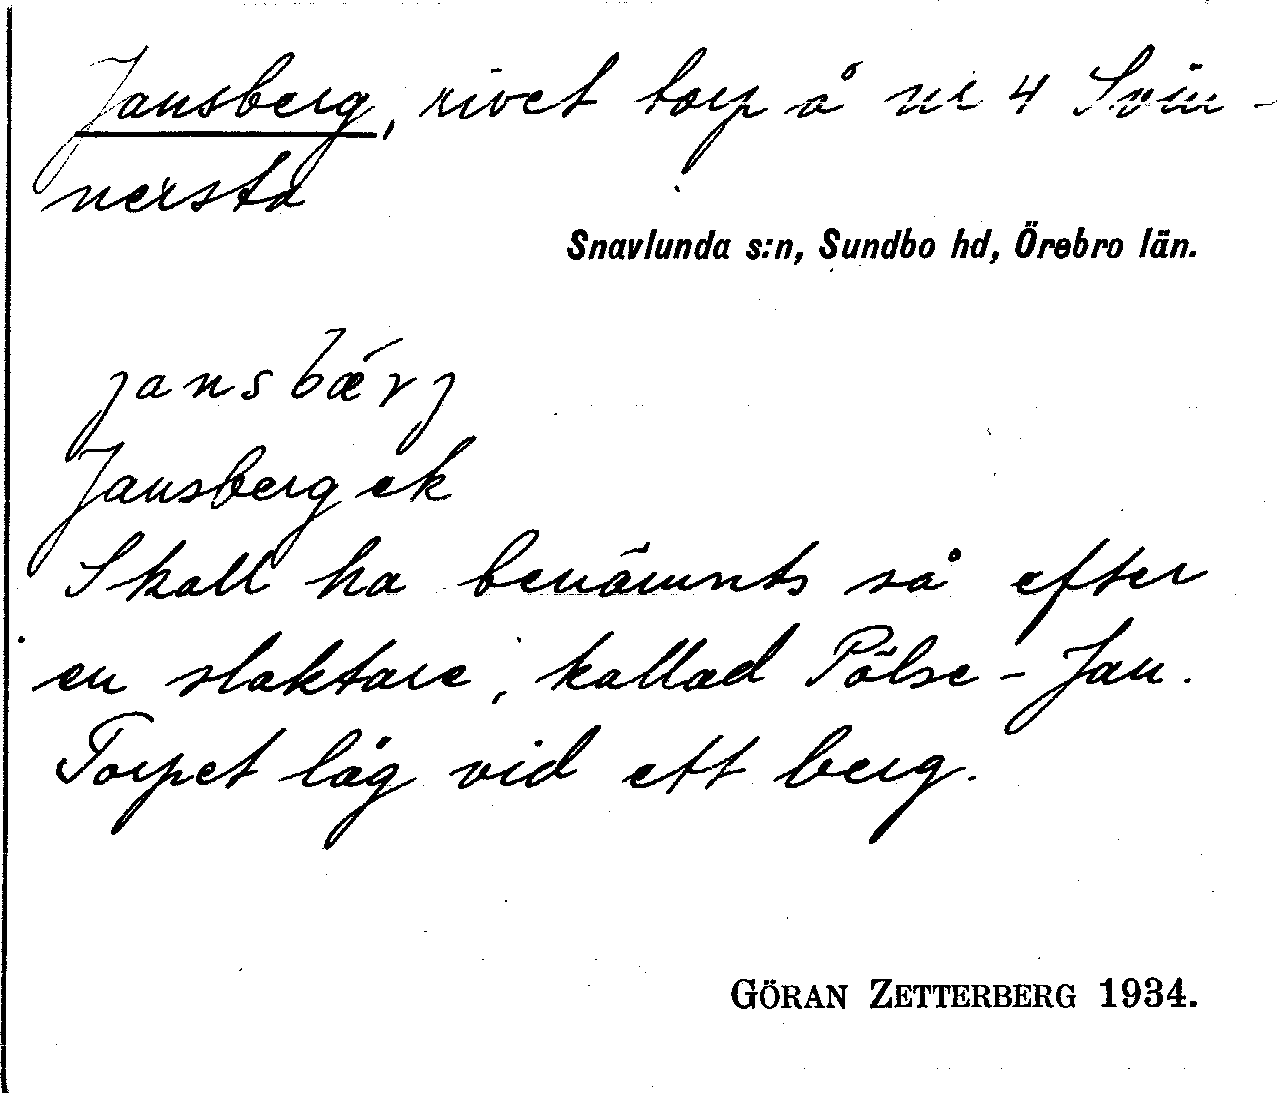 Jansberg, rivet torp å nr 4 Svin-
nersta
Snavlunda s:n, Sundbo hd, Örebro län.
jansbǽrj
Jansberg ek
Skall ha benämnts så efter
en slaktare, kallad Pölse-Jan.
Torpet låg vid ett berg.
GÖRAN ZETTERBERG 1934.